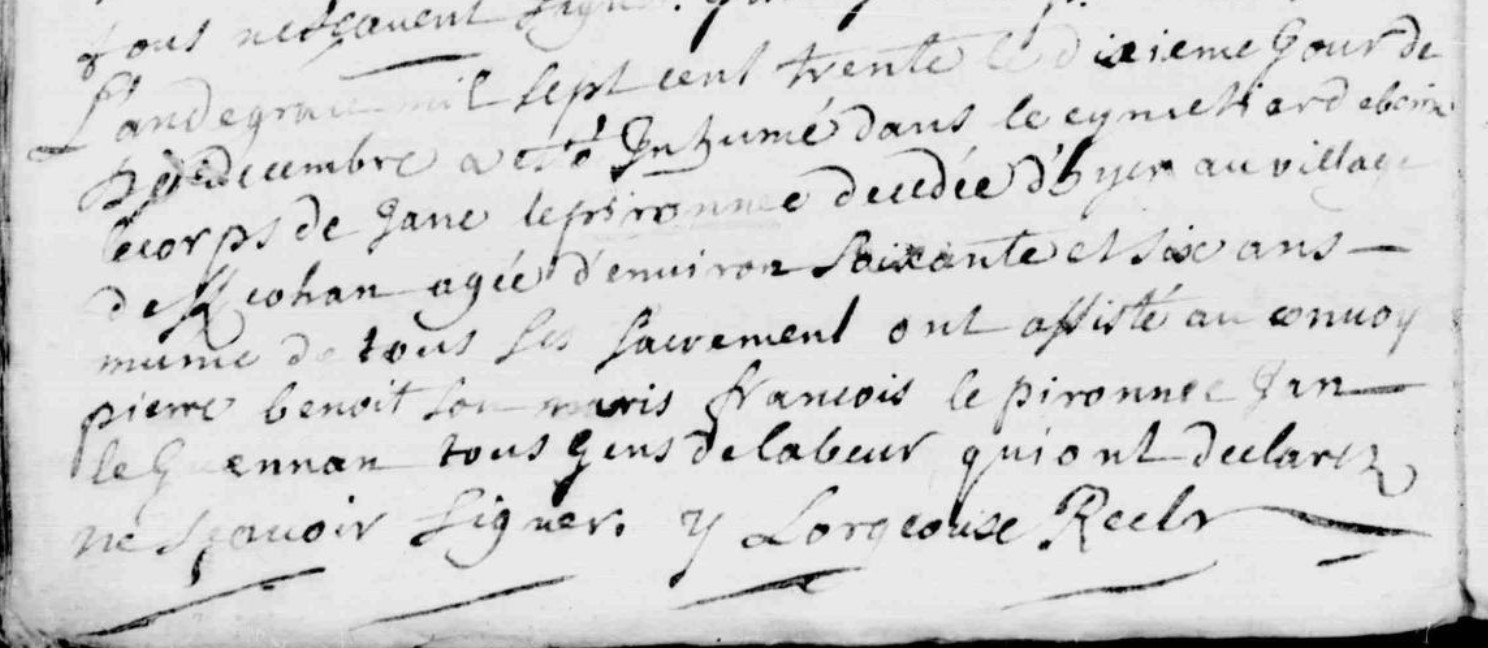 tous ne sçauent signer.
L'an de grace mil sept cent trente le dixieme Jour de
decembre a esté Inhumé dans le cymetiard
le corps de Jane le pironnec decedée d'hyer au village
de Kcohan agée d'enuiron soixante et six ans —
munie de tous ses sacrement ont assisté au conuoy
pierre benoit son maris francois le pironnec Jan
le Guennan tous gens de labeur qui ont declarez
ne sçauoir signer. y Lorgeouse Rectr